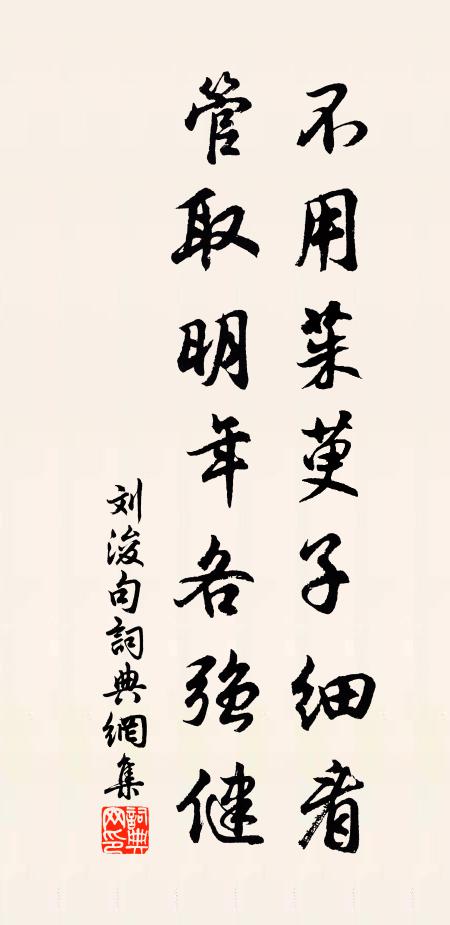 不用茱萸子细看
管取明年各强健
刘浚句詞典網集
詞典